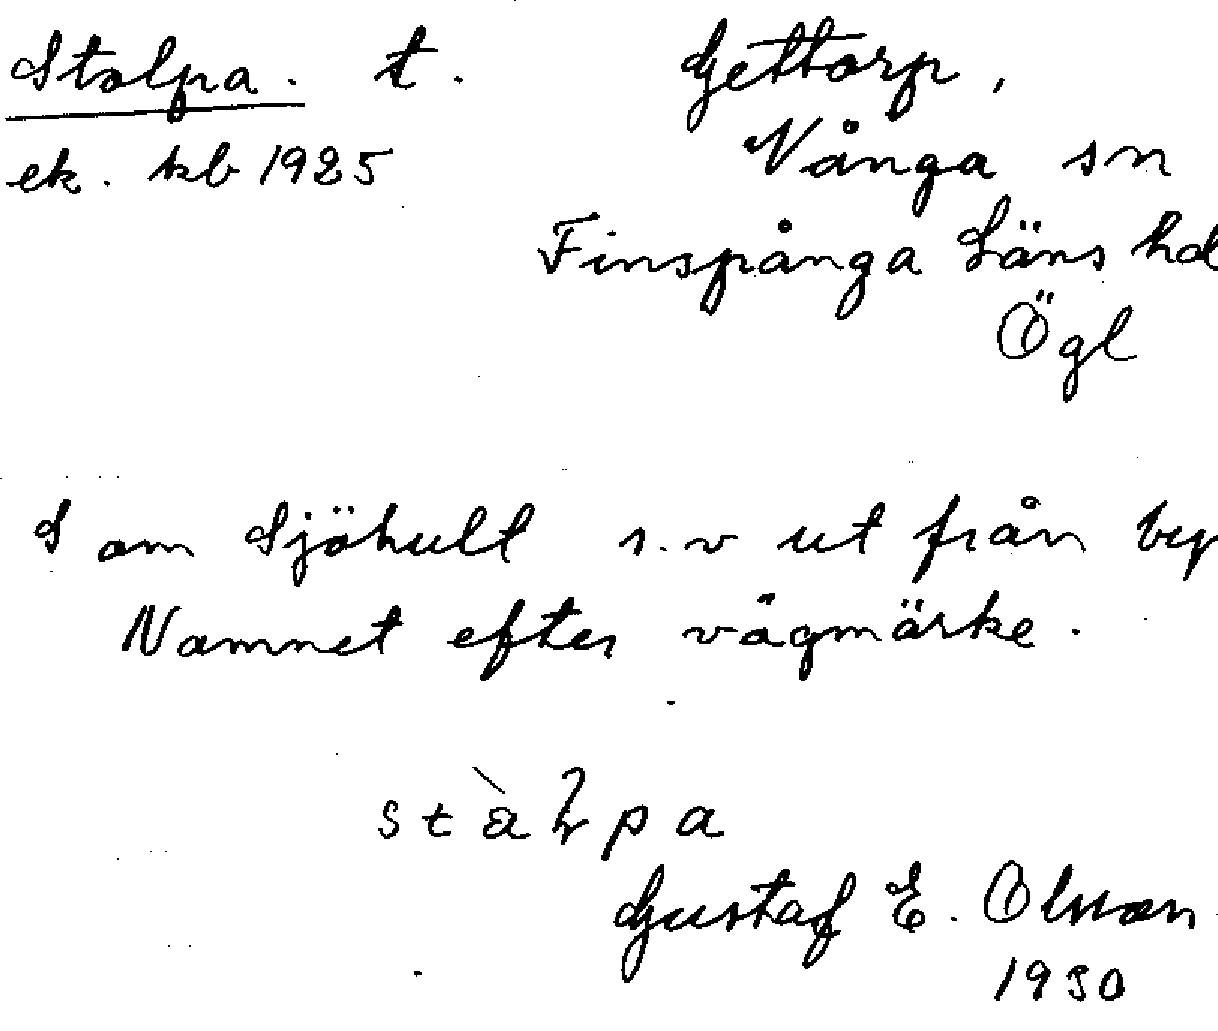 Stolpa. t. Gettorp,
ek. kb 1925 Vånga sn
Finspånga Läns hd
Ögl
S om Sjöhult s.v ut från by
Namnet efter vägmärke.
Gustaf E. Olsson
1930